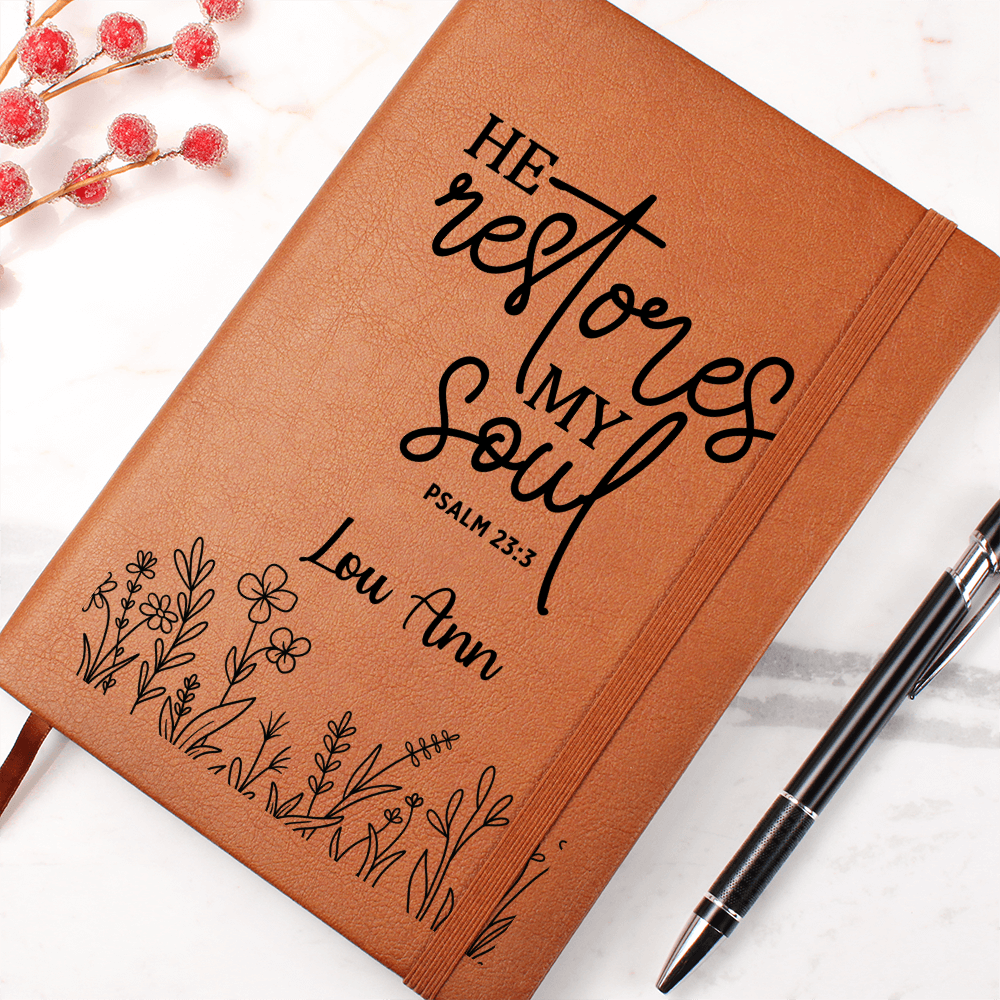 HE
restores
MY
soul
PSALM 23:3
Lou Ann